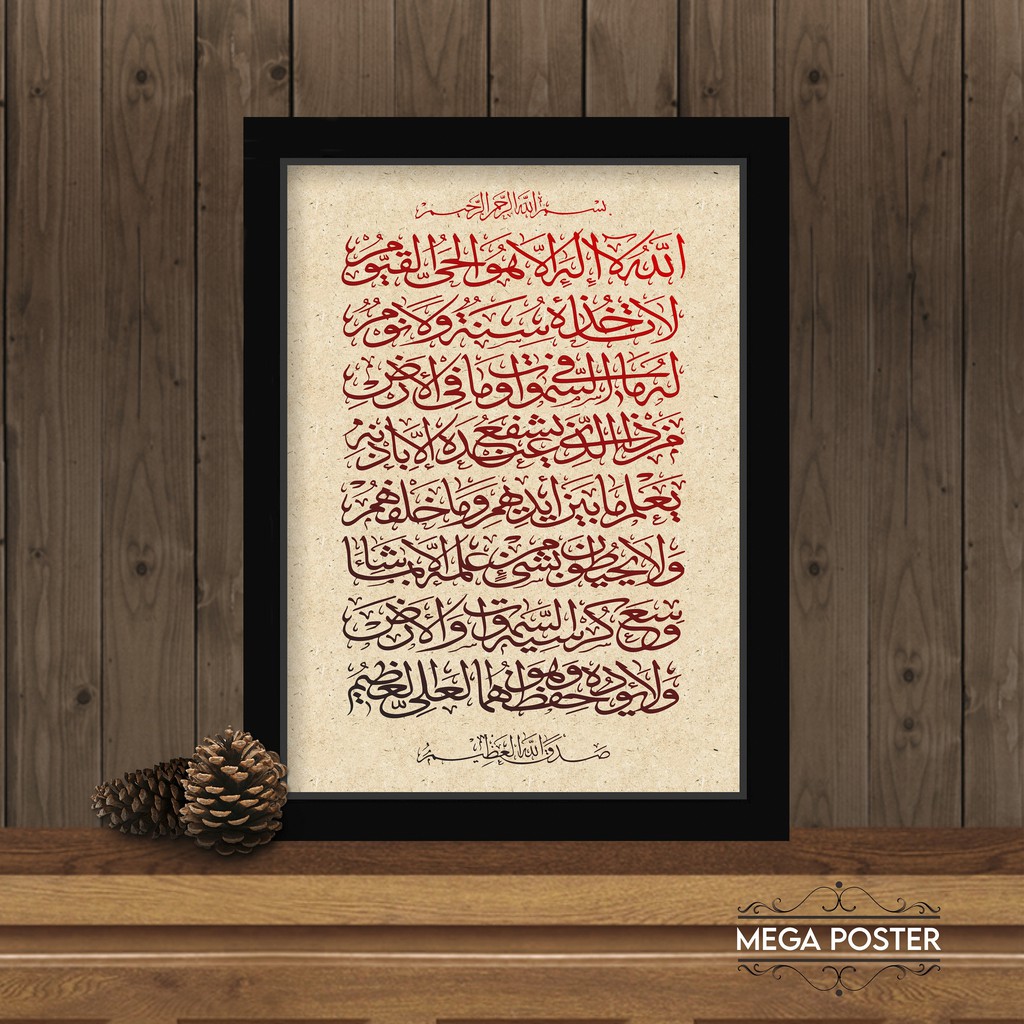 بسم الله الرحمن الرحيم
اللَّهُ لَا إِلَٰهَ إِلَّا هُوَ الْحَيُّ الْقَيُّومُ
لَا تَأْخُذُهُ سِنَةٌ وَلَا نَوْمٌ
لَهُ مَا فِي السَّمَٰوَاتِ وَمَا فِي الْأَرْضِ
مَنْ ذَا الَّذِي يَشْفَعُ عِنْدَهُ إِلَّا بِإِذْنِهِ
يَعْلَمُ مَا بَيْنَ أَيْدِيهِمْ وَمَا خَلْفَهُمْ
وَلَا يُحِيطُونَ بِشَيْءٍ مِنْ عِلْمِهِ إِلَّا بِمَا شَاءَ
وَسِعَ كُرْسِيُّهُ السَّمَٰوَاتِ وَالْأَرْضَ
وَلَا يَئُودُهُ حِفْظُهُمَا وَهُوَ الْعَلِيُّ الْعَظِيمُ
صدق الله العظيم
MEGA POSTER